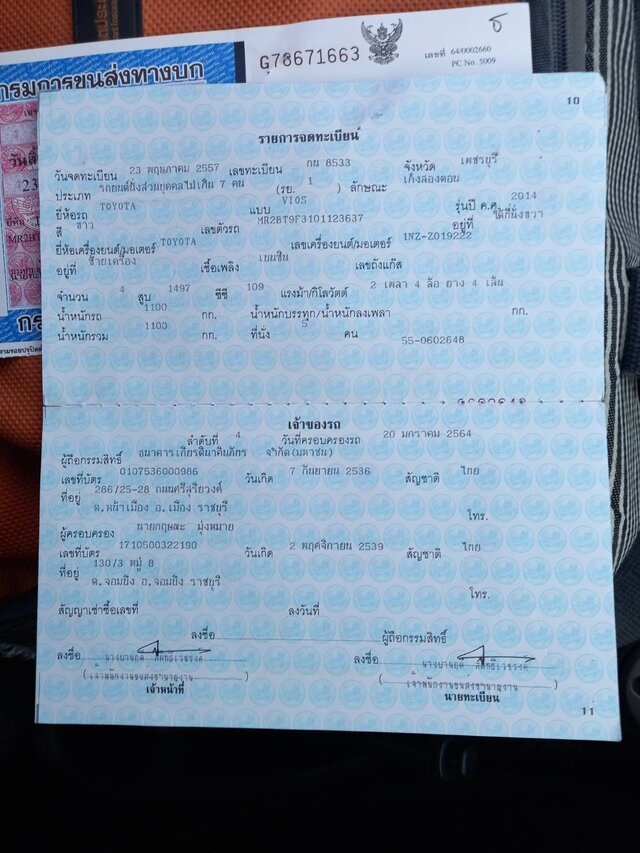 กรมการขนส่งทางบก
G78671663
เลขที่ 64/0002660
PC No. 5009
10
รายการจดทะเบียน
วันจดทะเบียน 23 พฤษภาคม 2557 เลขทะเบียน กน 8533 จังหวัด เพชรบุรี
ประเภท รถยนต์นั่งส่วนบุคคลไม่เกิน 7 คน (รย. 1 ) ลักษณะ เก๋งสองตอน
ยี่ห้อรถ TOYOTA แบบ VIOS รุ่นปี ค.ศ. 2014
สี ขาว เลขตัวรถ MR2BT9F3101123637 อยู่ที่ ใต้ที่นั่งขวา
ยี่ห้อเครื่องยนต์/มอเตอร์ TOYOTA เลขเครื่องยนต์/มอเตอร์ 1NZ-Z019222
อยู่ที่ ซ้ายเครื่อง เชื้อเพลิง เบนซิน เลขถังแก๊ส
จำนวน 4 สูบ 1497 ซีซี 109 แรงม้า/กิโลวัตต์ 2 เพลา 4 ล้อ ยาง 4 เส้น
น้ำหนักรถ 1100 กก. น้ำหนักบรรทุก/น้ำหนักลงเพลา กก.
น้ำหนักรวม 1100 กก. ที่นั่ง 5 คน
55-0602648
เจ้าของรถ
ลำดับที่ 4 วันที่ครอบครองรถ 20 มกราคม 2564
ผู้ถือกรรมสิทธิ์ ธนาคารเกียรตินาคินภัทร จำกัด(มหาชน)
เลขที่บัตร 0107536000986 วันเกิด 7 กันยายน 2536 สัญชาติ ไทย
ที่อยู่ 286/25-28 ถนนศรีสุริยวงศ์
ต.หน้าเมือง อ.เมือง ราชบุรี โทร.
ผู้ครอบครอง นายกฤษณะ มุ่งหมาย
เลขที่บัตร 1710500322190 วันเกิด 2 พฤศจิกายน 2539 สัญชาติ ไทย
ที่อยู่ 130/3 หมู่ 8
ต.จอมบึง อ.จอมบึง ราชบุรี โทร.
สัญญาเช่าซื้อเลขที่ ลงวันที่
ลงชื่อ ผู้ถือกรรมสิทธิ์
ลงชื่อ ลงชื่อ
เจ้าหน้าที่ นายทะเบียน
11